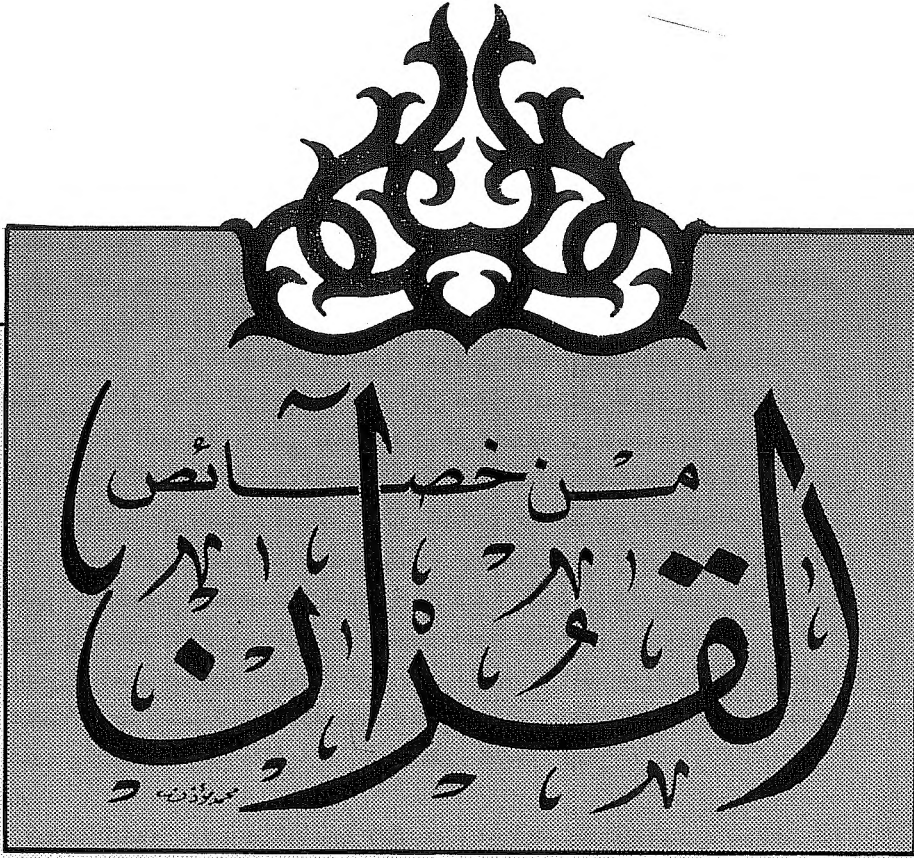 من خصائص
القرآن